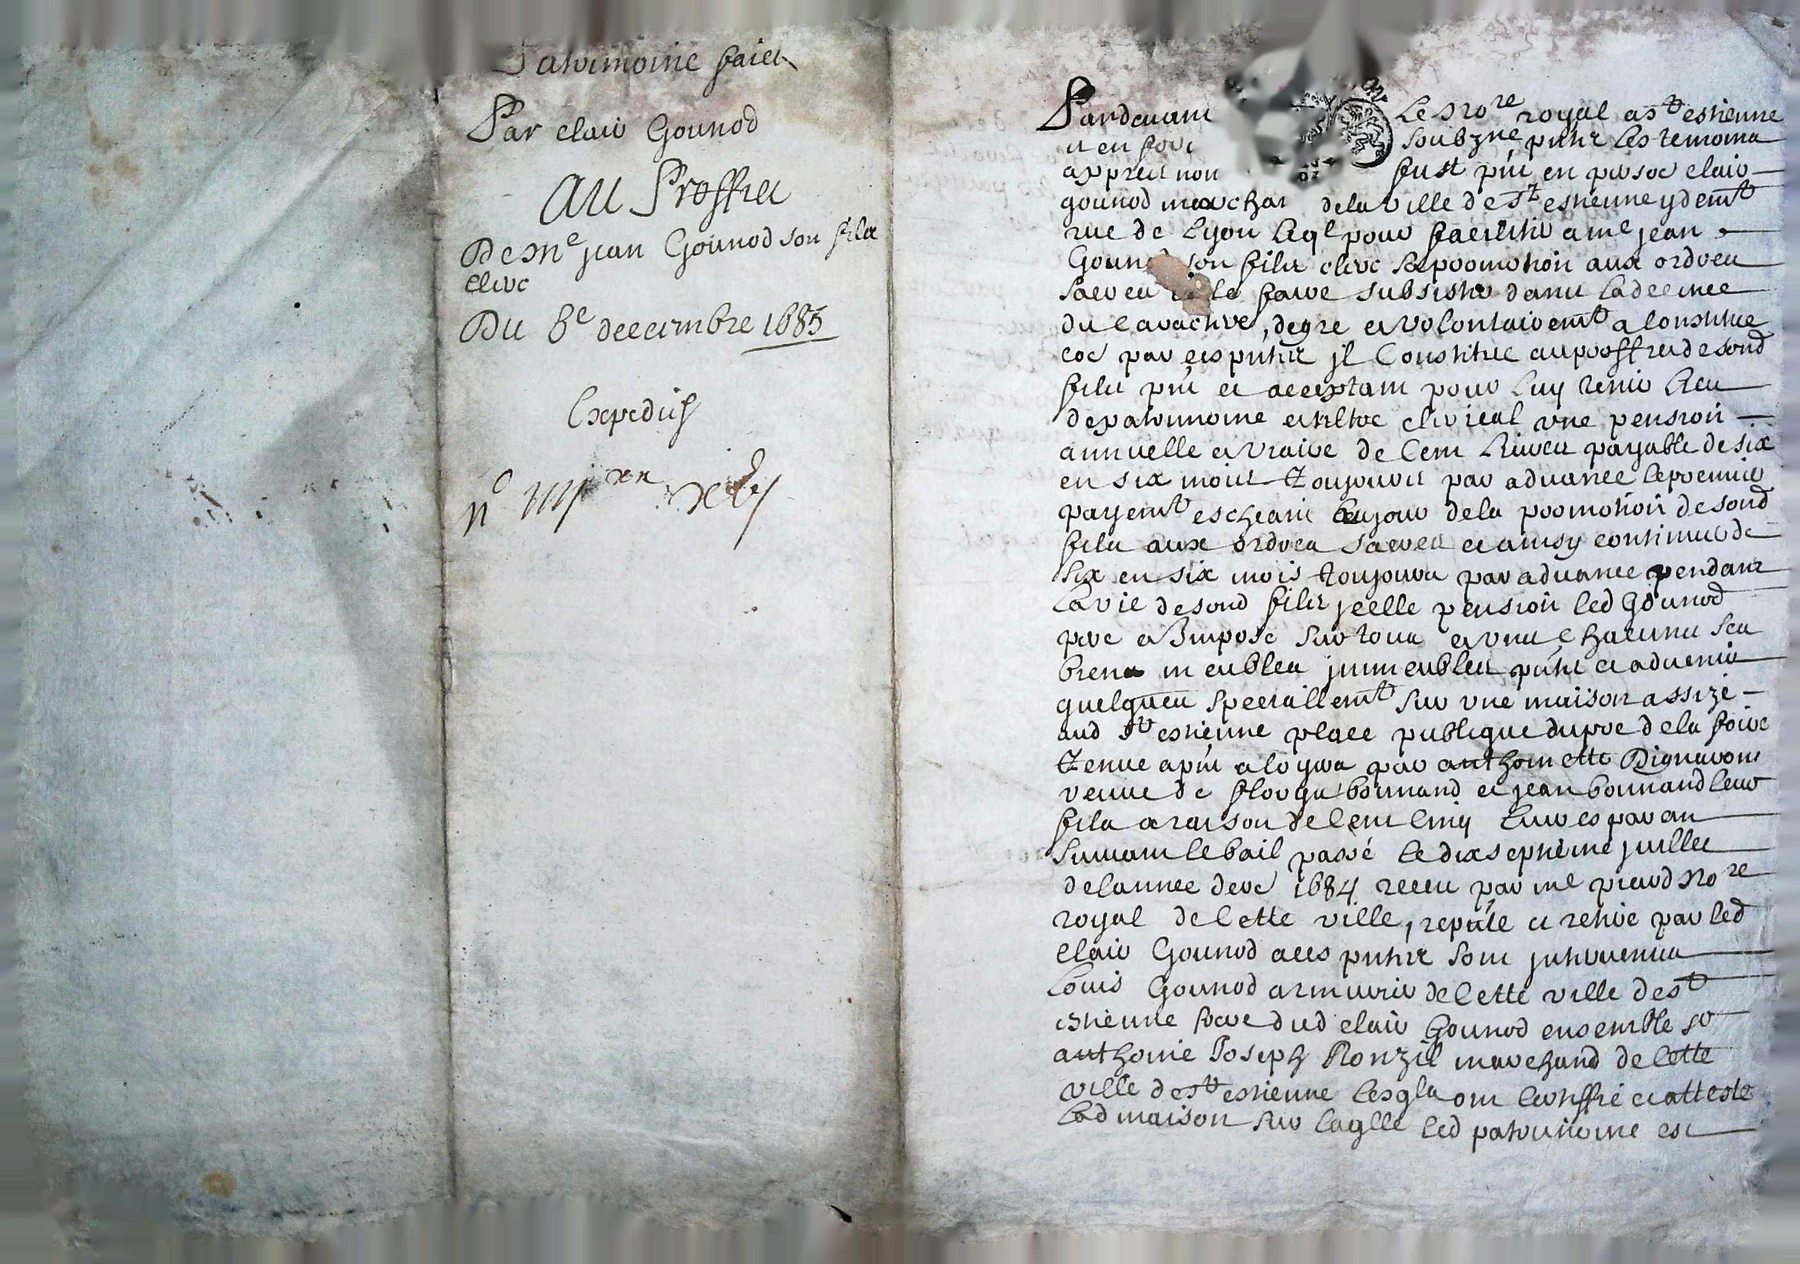 Patrimoine faict
Par clair Gounod
Au Proffict
De Me jean Gounod son fils
clerc
Du 8e decembre 1685
Expedié
Pardevant Le Nore royal a St estienne
soubzne puntz les temoins
appres nom fust pnt en psone clair
gounod marchar de la ville de St estienne y demt
rue de Lyon leql pour faciliter a me jean
Goun son fils clerc sa promotion aux ordres
sacres le faire subsister dans la decence
du caractere, de gre et volontairemt a constitue
coe par ces puntz jl constitue au proffict de sond
fils pnt et acceptant pour luy tenir lieu
de patrimoine et tiltre clerical vne pension
annuelle et viaire de cent livres payable de six
en six mois toujours par advance le premier
payemt escheant au jour de la promotion de sond
fils aux ordres sacres et ainsy continuer de
six en six mois toujours par advance pendant
la vie de sond fils jcelle pension led Gounod
pere a Jmpose sur tous et vns chacuns ses
biens meubles jmmeubles pnts et advenir
quelques speciallemt sur vne maison assize
aud St estienne place publique du pre de la foire
tenue a pnt a loyer par anthoinette Pignavont
veuve de bonnand et jean bonnand leur
fils a raison de cent cinq livres par an
suivant le bail passé le dixseptieme juillet
de lannee dere 1684 receu par me picard Nore
royal de cette ville, repetée et retiré par led
clair Gounod a ces puntz sont jntervenus
Louis Gounod armurier de cette ville de St
estienne frere dud clair Gounod ensemble sr
anthoine Joseph Ronzil marchand de cette
ville de St estienne lesqls ont certiffié et atteste
lad maison sur laqlle led patrimoine est